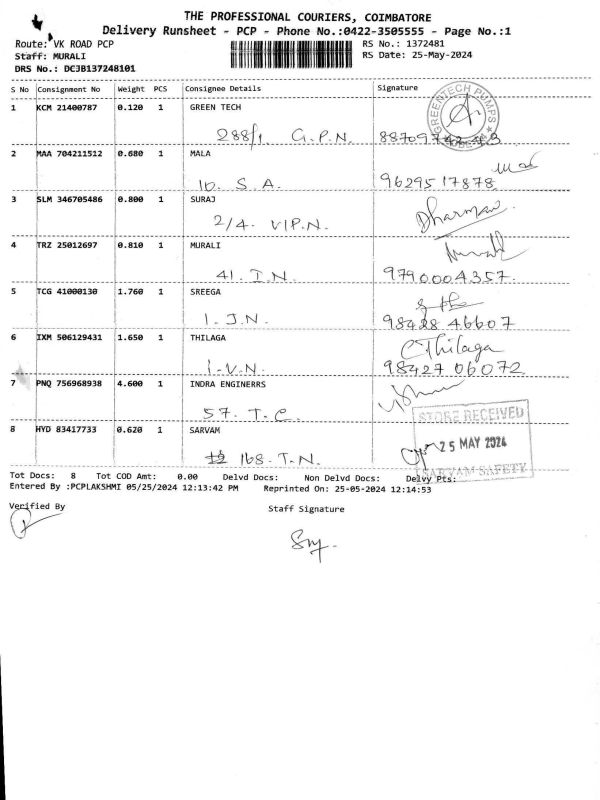 THE PROFESSIONAL COURIERS, COIMBATORE
Delivery Runsheet - PCP - Phone No.:0422-3505555 - Page No.:1
Route: VK ROAD PCP
RS No.: 1372481
Staff: MURALI
RS Date: 25-May-2024
DRS No.: DCJB137248101
S No Consignment No Weight PCS Consignee Details Signature
1 KCM 21400787 0.120 1 GREEN TECH
GREENTECH PUMPS
288/1 G.P.N.
2 MAA 704211512 0.680 1 MALA
10. S. A. 9629517878
3 SLM 346705486 0.800 1 SURAJ
2/4. V.P.N. Dharman
4 TRZ 25012697 0.810 1 MURALI
41. I.N. 9790004357.
5 TCG 41000130 1.760 1 SREEGA
1. J.N. 98428 46607
6 IXM 506129431 1.650 1 THILAGA CThilaga
1-V.N. 98427 06072
7 PNQ 756968938 4.600 1 INDRA ENGINERRS
57. T.C.
STORE RECEIVED
8 HYD 83417733 0.620 1 SARVAM
25 MAY 2024
168. T.N.
SARVAM SAFETY
Tot Docs: 8 Tot COD Amt: 0.00 Delvd Docs: Non Delvd Docs: Delvy Pts:
Entered By :PCPLAKSHMI 05/25/2024 12:13:42 PM Reprinted On: 25-05-2024 12:14:53
Verified By
Staff Signature